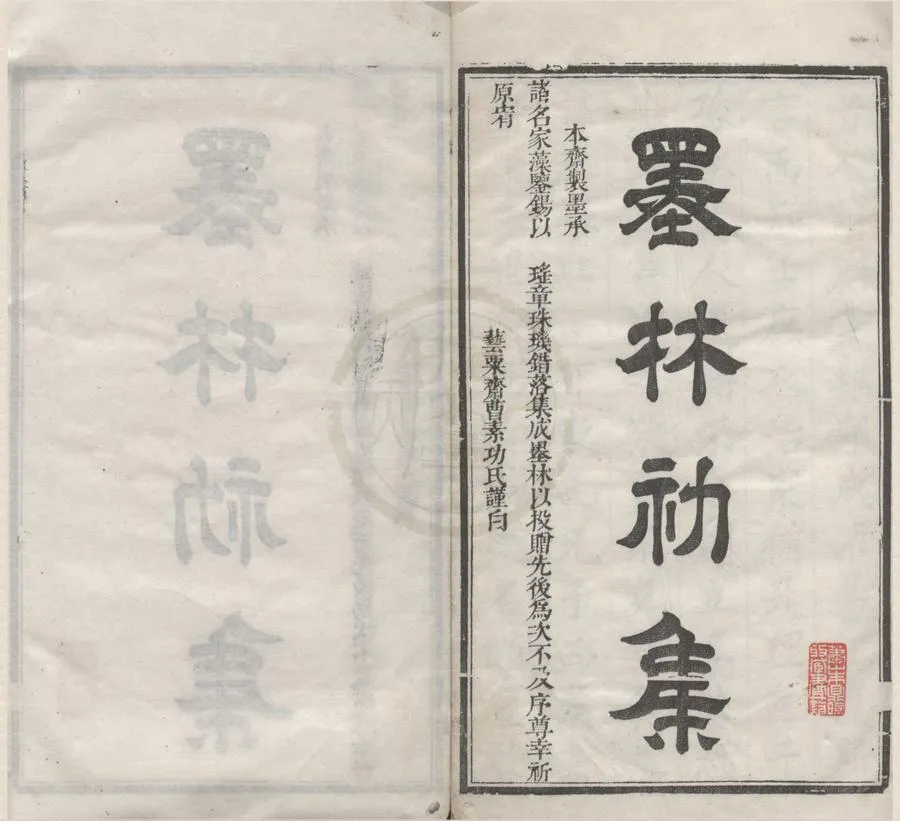 墨林初集
本齋製墨承
諸名家藻鑒錫以　瑤章珠璣錯落集成墨林以投贈先後為次不及序尊幸祈
原宥
藝粟齋曹素功氏謹白